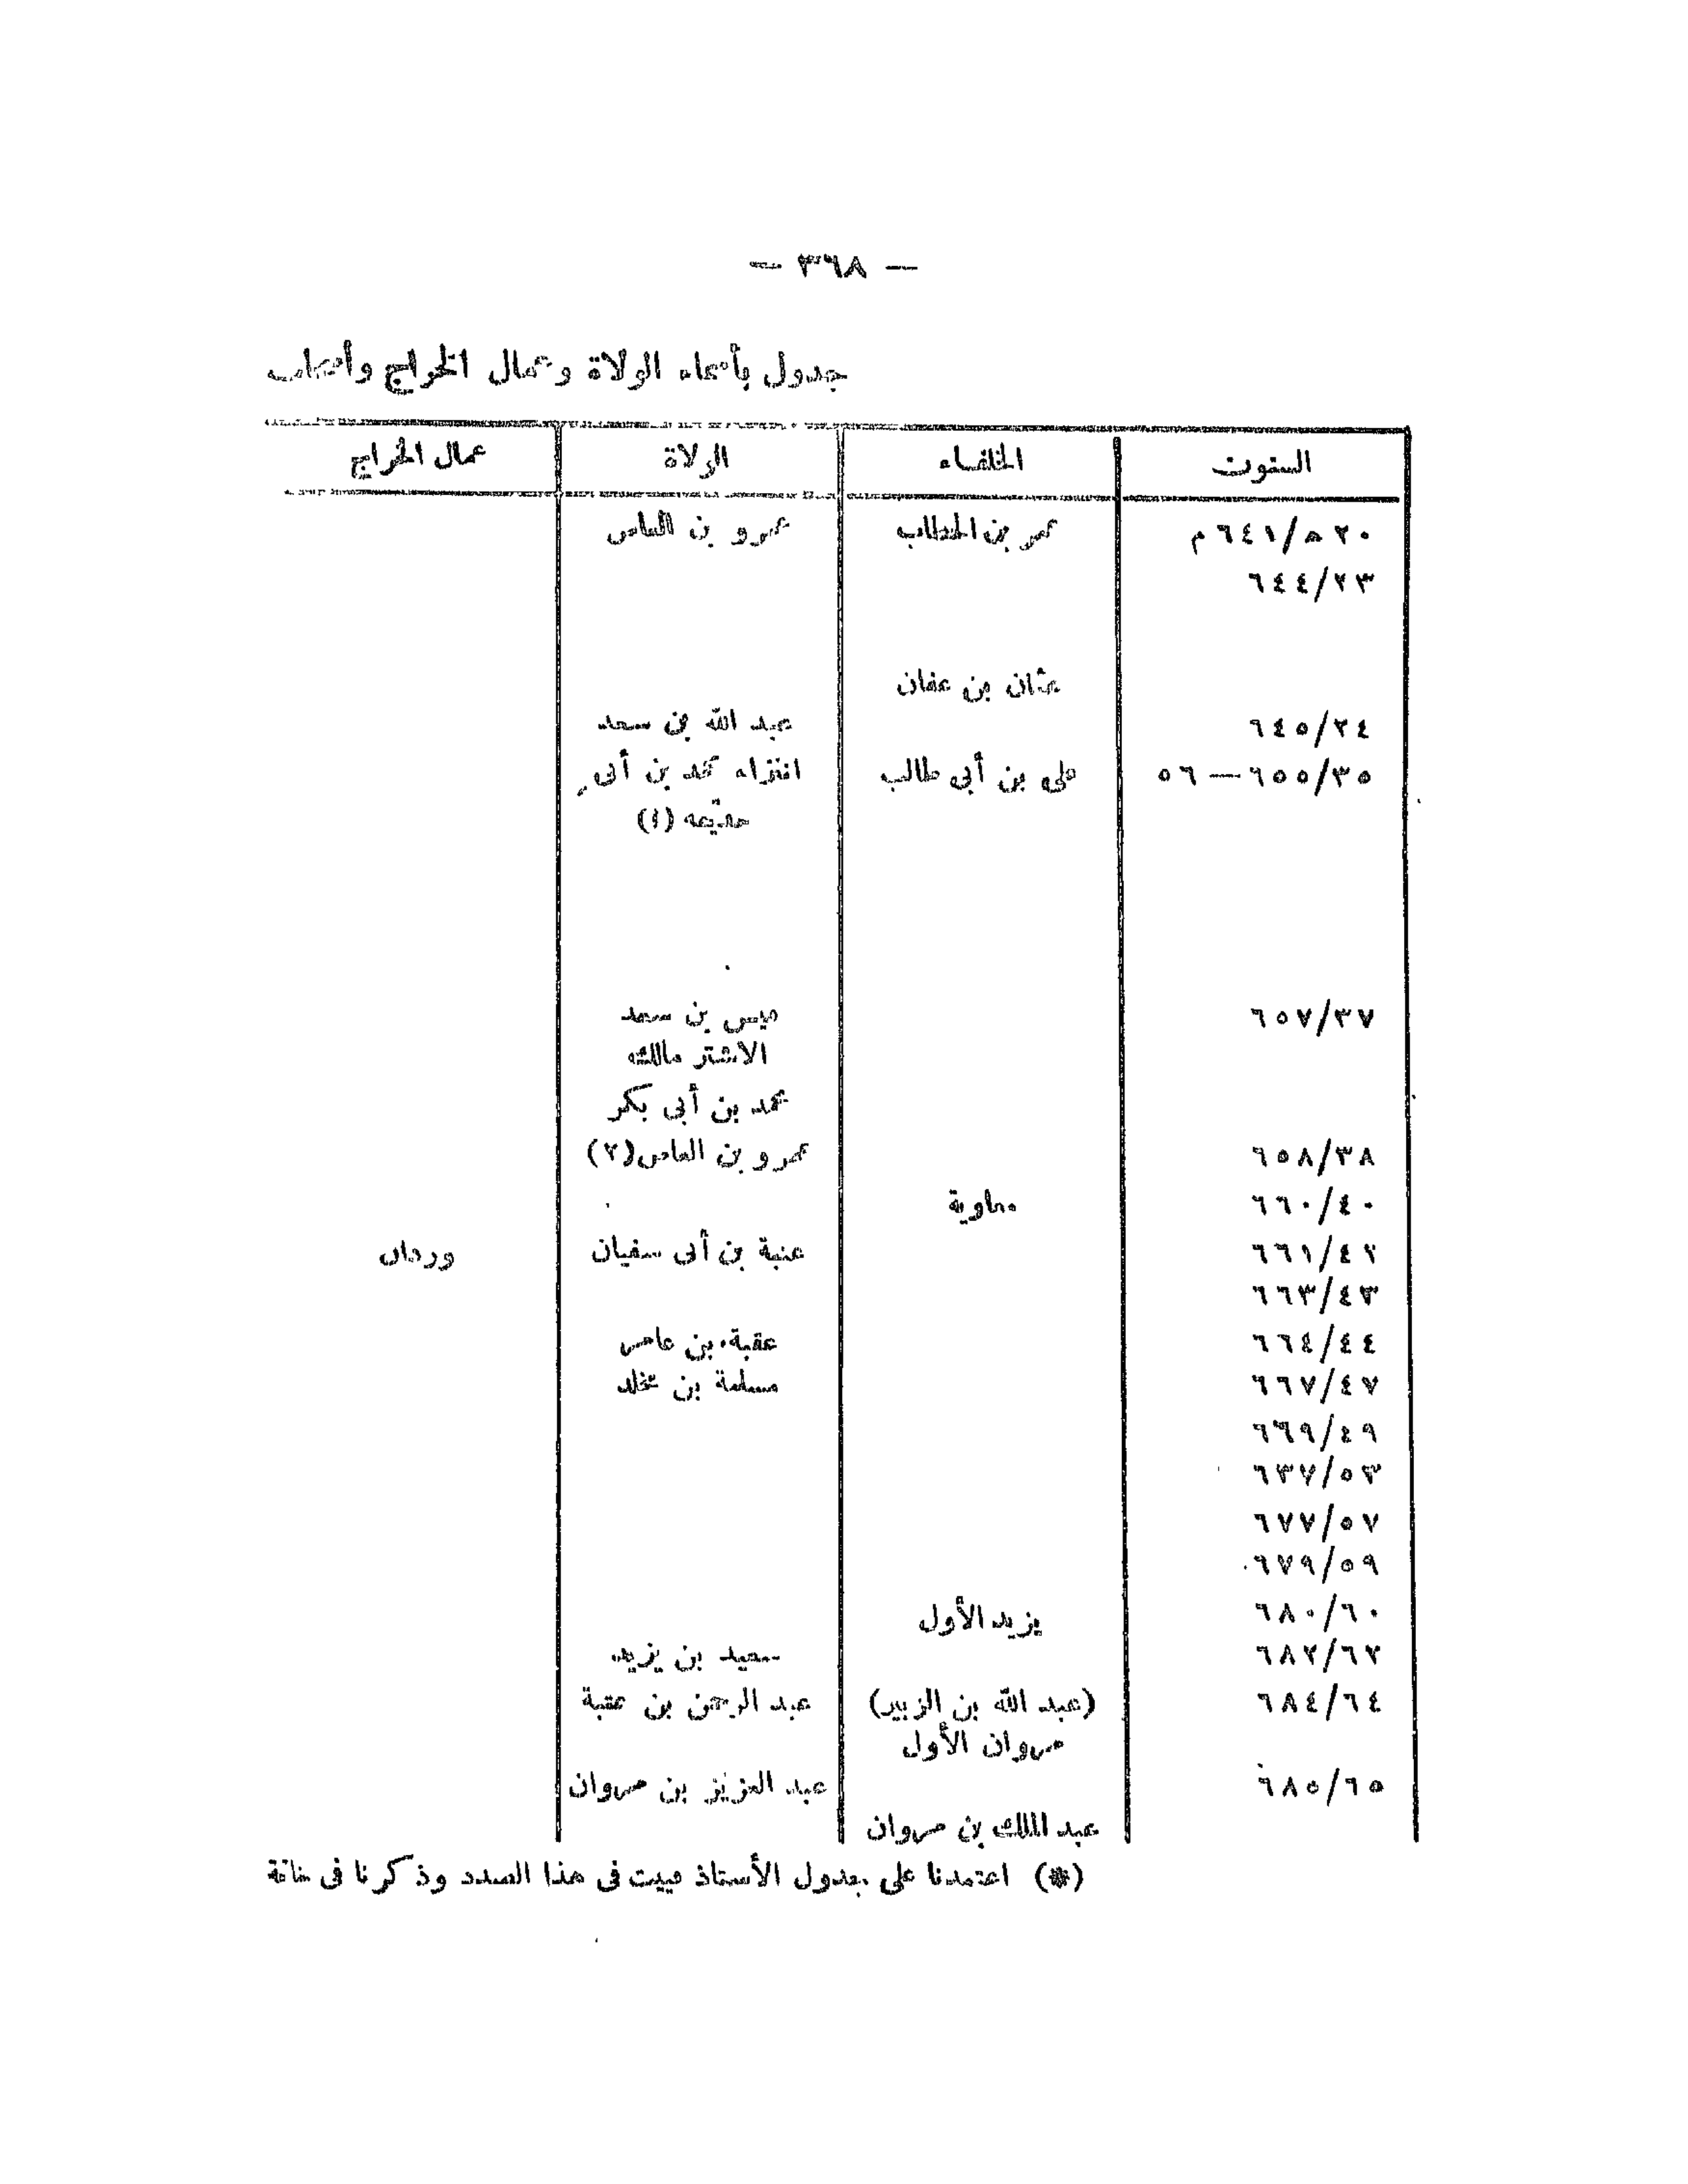 — ٣٦٨ —
جدول بأسماء الولاة وعمال الخراج وأصحاب
السنوت الخلفاء الولاة عمال الخراج
٢٠ ه/٦٤١ م عمر بن الخطاب عمرو بن العاص
٢٣/٦٤٤
عثمان بن عفان
٢٤/٦٤٥ عبد الله بن سعد
٣٥/٦٥٥—٥٦ على بن أبى طالب انتزاء محمد بن أبى
حذيفه (١)
٣٧/٦٥٧ قيس بن سعد
الاشتر مالك
محمد بن أبى بكر
٣٨/٦٥٨ عمرو بن العاص(٢)
٤٠/٦٦٠ معاوية
٤٢/٦٦١ عتبة بن أبى سفيان وردان
٤٣/٦٦٣
٤٤/٦٦٤ عقبة بن عامر
٤٧/٦٦٧ مسلمة بن مخلد
٤٩/٦٦٩
٥٣/٦٣٧
٥٧/٦٧٧
٥٩/٦٧٩
٦٠/٦٨٠ يزيد الأول
٦٢/٦٨٢ سعيد بن يزيد
٦٤/٦٨٤ (عبد الله بن الزبير) عبد الرحمن بن عقبة
مروان الأول
٦٥/٦٨٥ عبد العزيز بن مروان
عبد الملك بن مروان
(*) اعتمدنا على جدول الأستاذ فييت فى هذا الصدد وذكرنا فى خانة